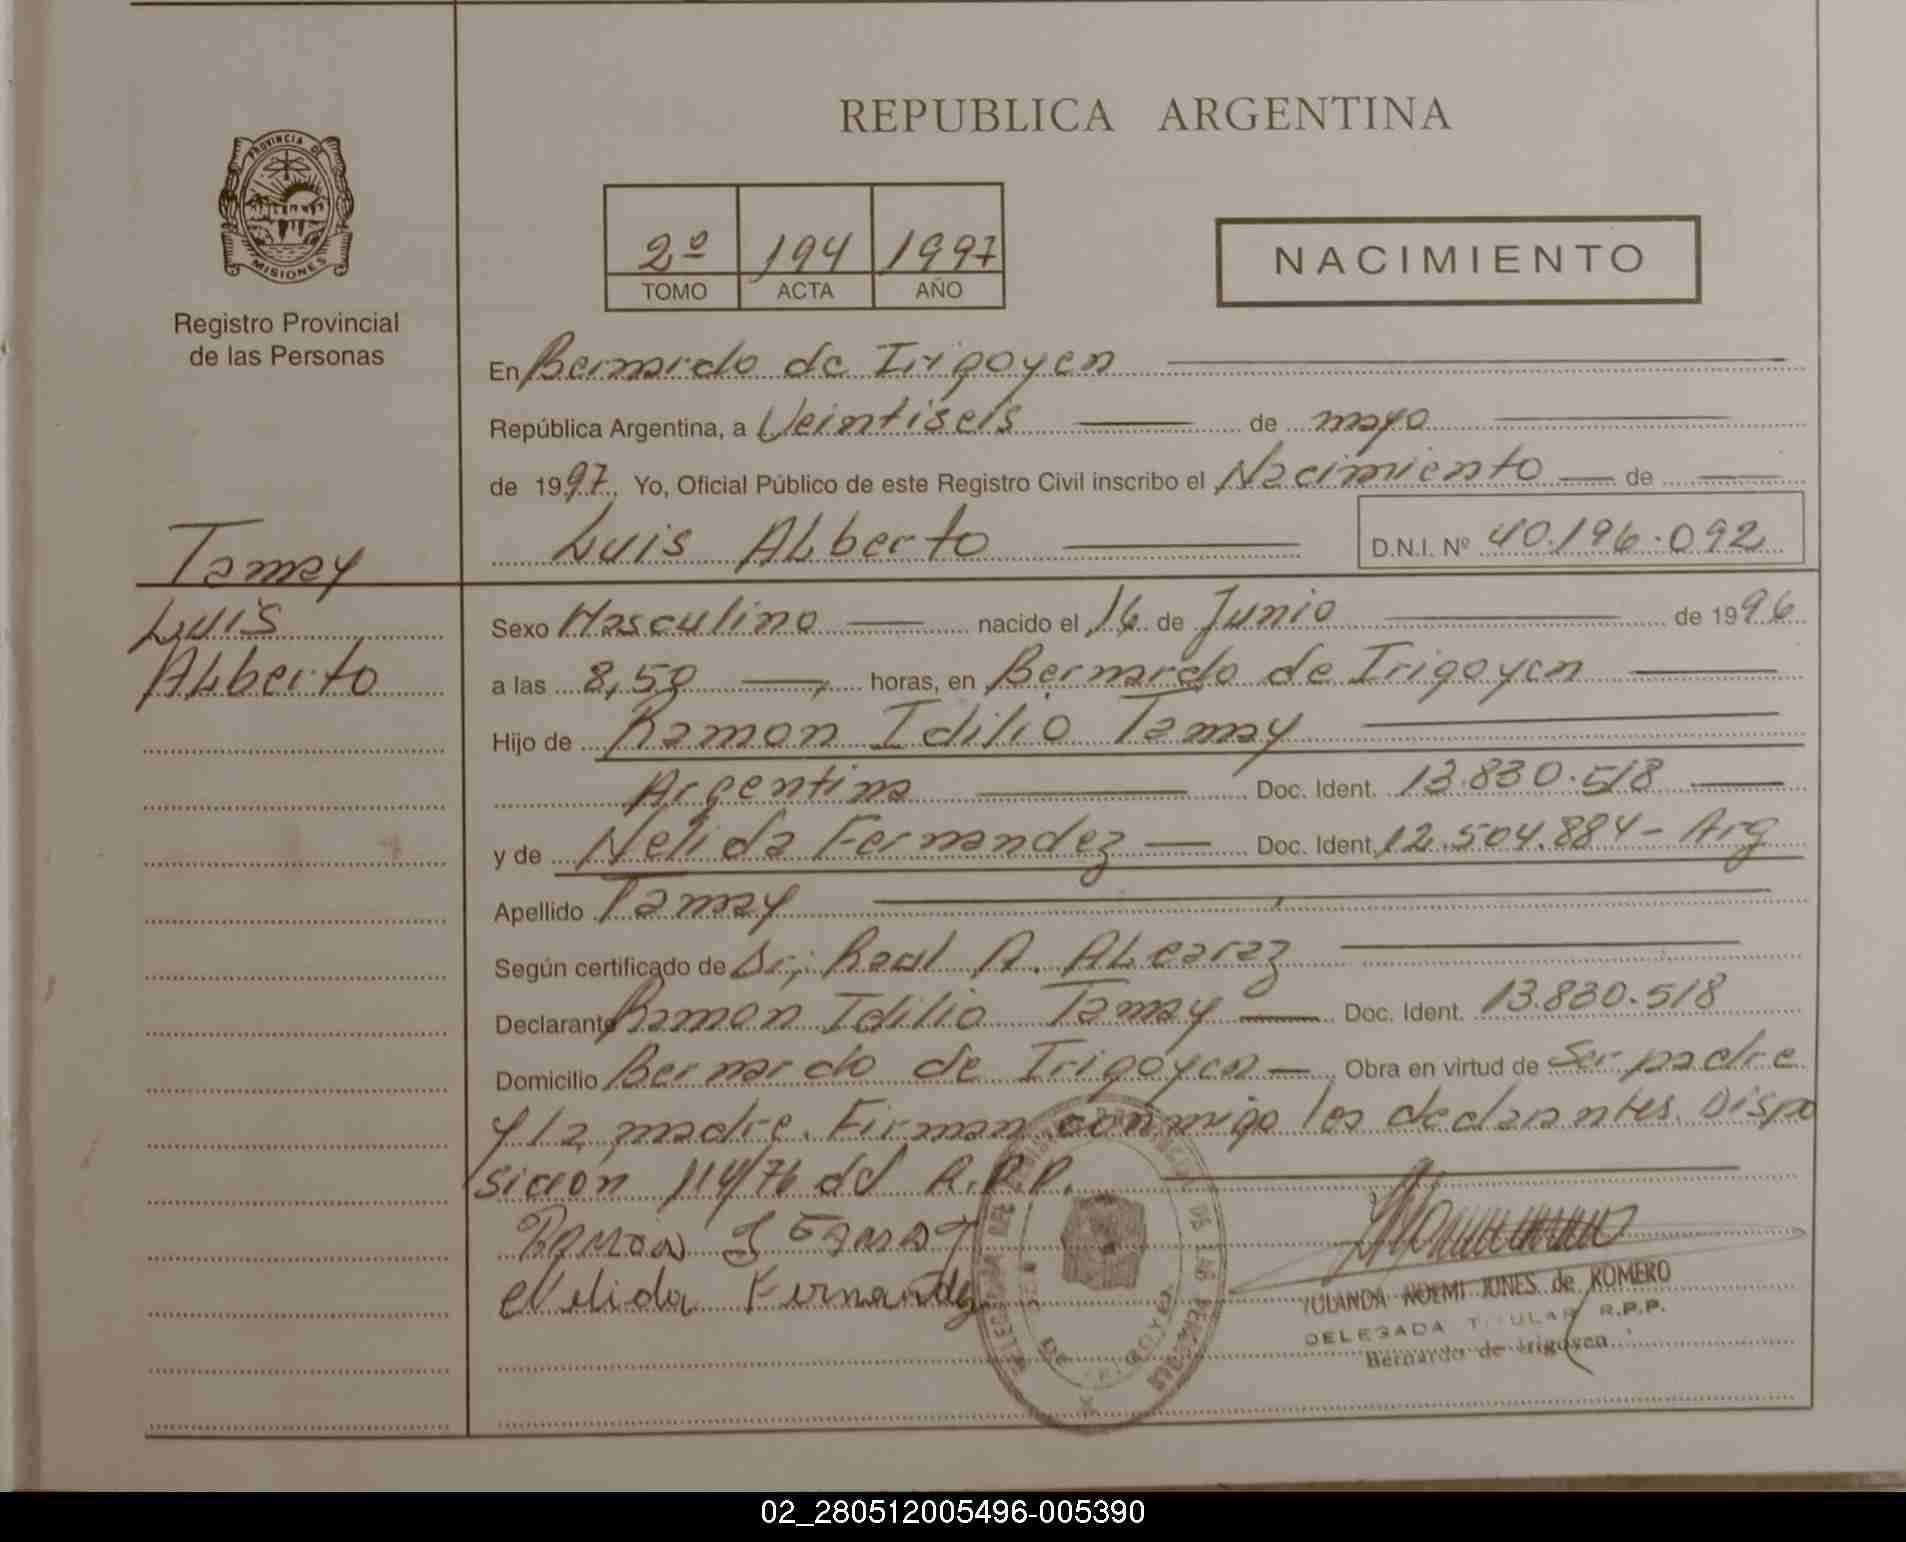 REPUBLICA ARGENTINA
PROVINCIA DE
MISIONES
Registro Provincial
de las Personas
2º 194 1997
TOMO ACTA AÑO
NACIMIENTO
En Bernardo de Irigoyen
República Argentina, a Veintiseis de mayo
de 1997, Yo, Oficial Público de este Registro Civil inscribo el Nacimiento de
Luis ALberto D.N.I. Nº 40.196.092
Tamay
Luis
ALberto
Sexo Masculino nacido el 16 de Junio de 1996
a las 8,50 horas, en Bernardo de Irigoyen
Hijo de Ramon Idilio Tamay
Argentina Doc. Ident. 13.830.518
y de Nelida Fernandez Doc. Ident. 12.504.884 - Arg
Apellido Tamay
Según certificado de Dr; Raul A. ALcaraz
Declarante Ramon Idilio Tamay Doc. Ident. 13.830.518
Domicilio Bernardo de Irigoyen Obra en virtud de Ser padre
y la madre. Firman conmigo los declarantes. Dispo
sicion 114/76 del R.P.P.
Ramon I Tamay
Nelida Fernandez
YOLANDA NOEMI JONES de ROMERO
DELEGADA TITULAR R.P.P.
Bernardo de Irigoyen
02_280512005496-005390